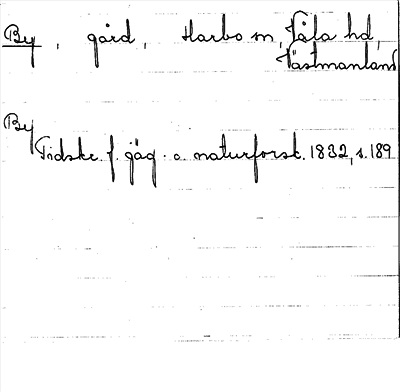 By, gård, Harbo sn, Våla hd,
Västmanland
By
Tidskr. f. jäg. o. naturforsk. 1832, s. 189